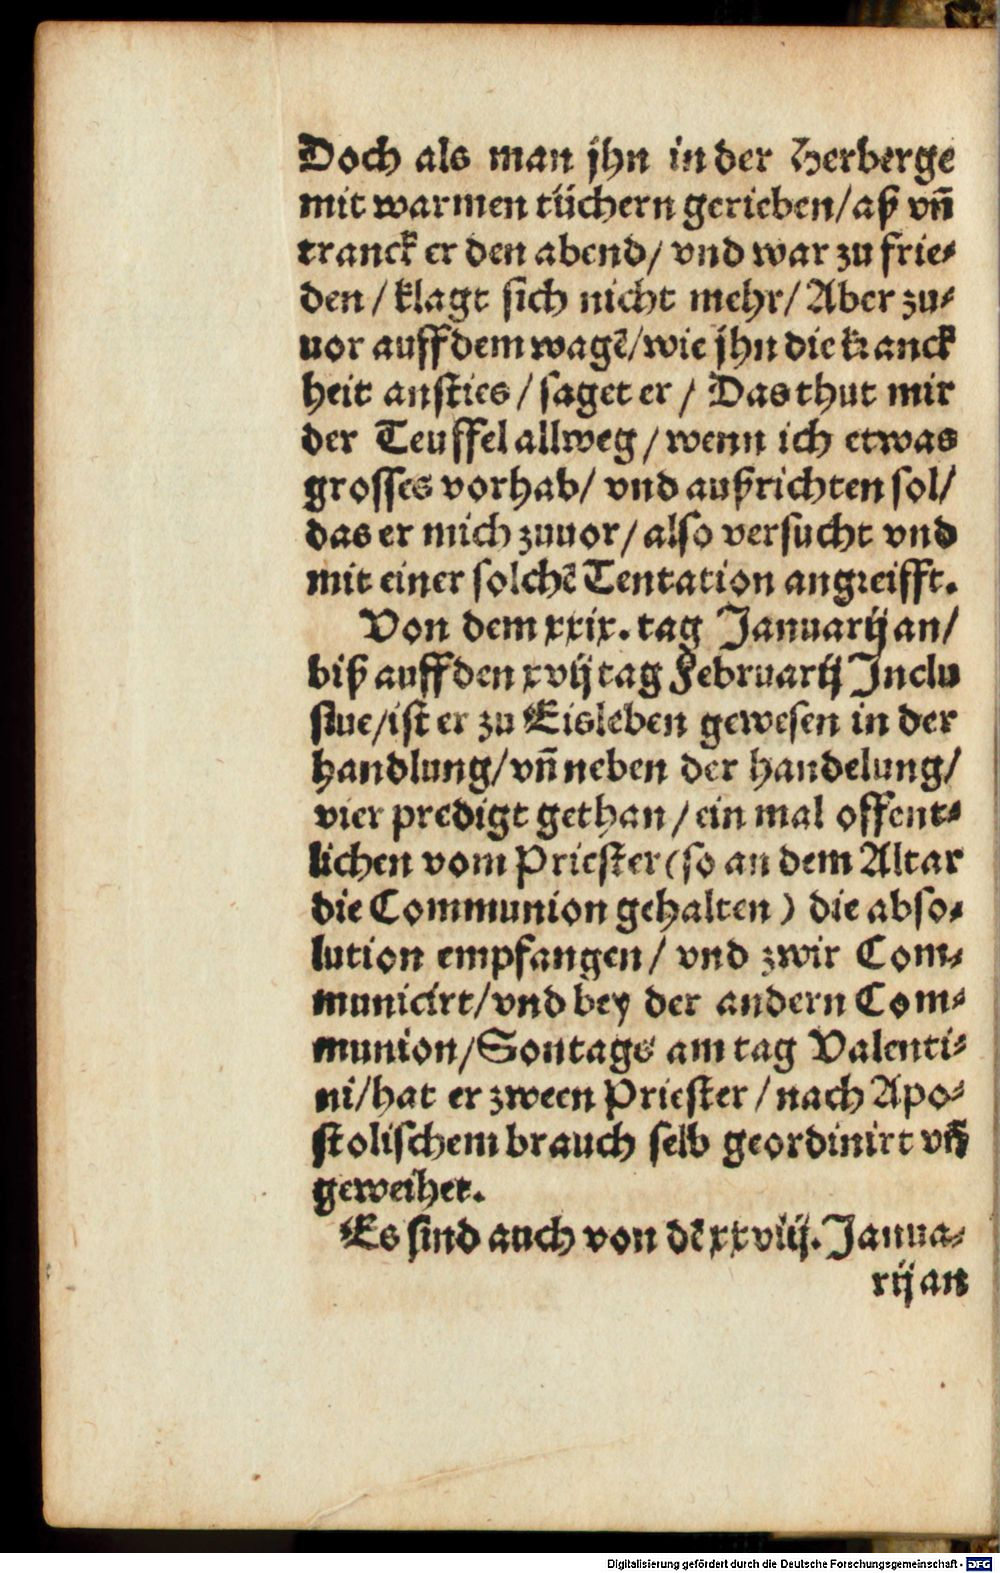 Doch als man jhn in der Herberge
mit warmen tüchern gerieben/aß vñ
tranck er den abend/ vnd war zu frie⸗
den/ klagt sich nicht mehr/ Aber zu⸗
uor auff dem wagẽ/wie jhn die kranck
heit ansties/ saget er/ Das thut mir
der Teuffel allweg/ wenn ich etwas
grosses vorhab/ vnd außrichten sol/
das er mich zuuor/ also versucht vnd
mit einer solchẽ Tentation angreifft.
Von dem xxix. tag Januarij an/
biß auff den xvij tag Februarij Inclu
siue/ist er zu Eisleben gewesen in der
handlung/vñ neben der handelung/
vier predigt gethan/ ein mal offent⸗
lichen vom Priester (so an dem Altar
die Communion gehalten) die abso⸗
lution empfangen/ vnd zwir Com⸗
municirt/vnd bey der andern Com⸗
munion/Sontags am tag Valenti⸗
ni/hat er zween Priester/ nach Apo⸗
stolischem brauch selb geordinirt vñ
geweihet.
Es sind auch von dẽ xxviij. Janua⸗
rij an
Digitalisierung gefördert durch die Deutsche Forschungsgemeinschaft - DFG